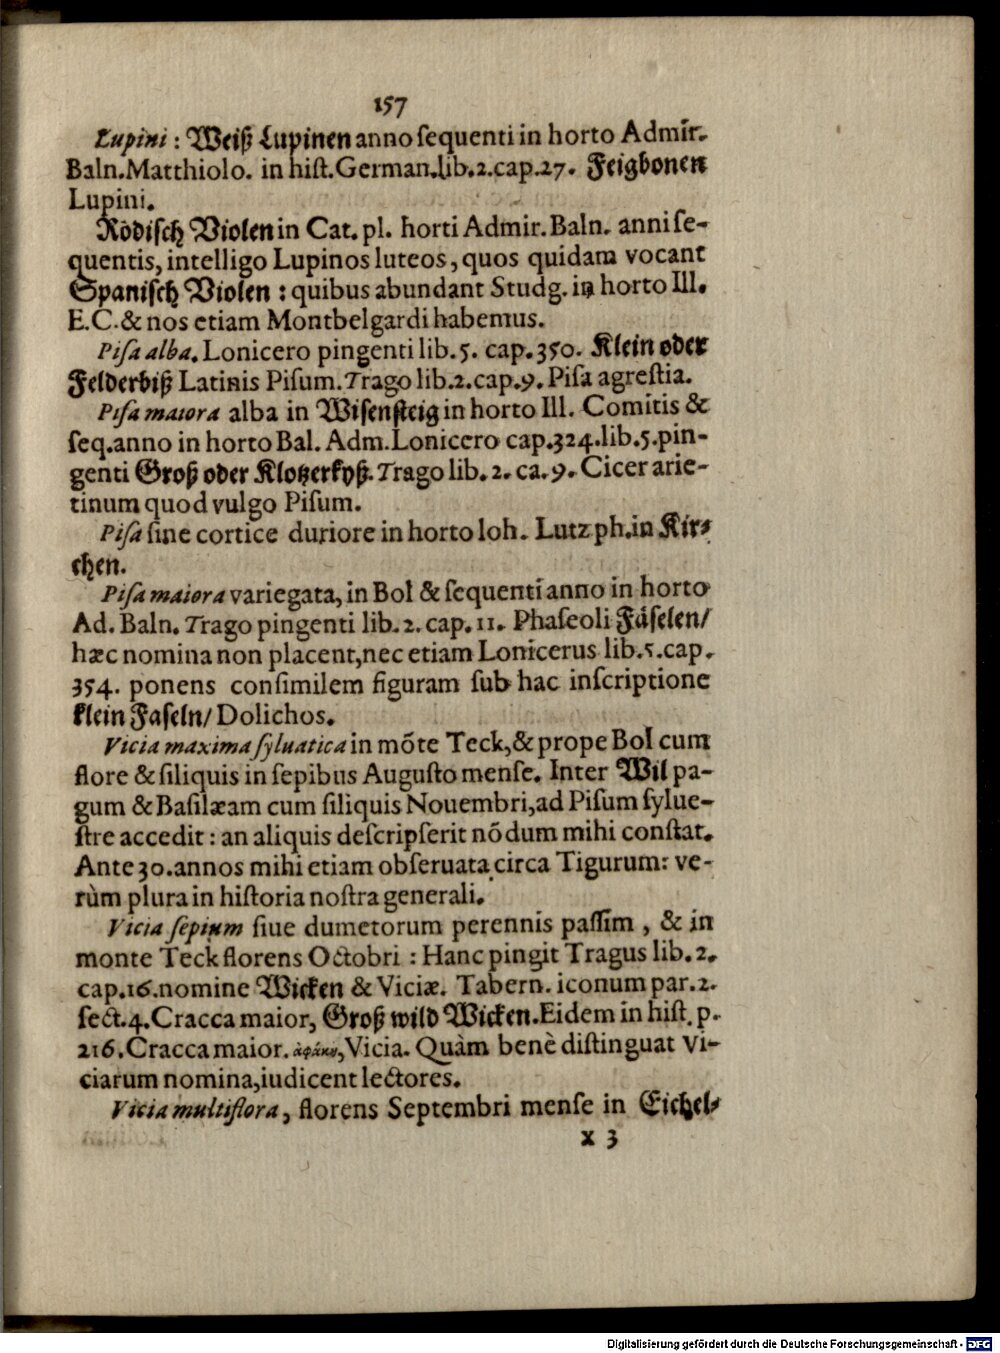 157
Lupini : Weiß Lupinen anno sequenti in horto Admir.
Baln. Matthiolo. in hist. German. lib. 2. cap. 27. Feigbonen
Lupini.
Rödisch Violen in Cat. pl. horti Admir. Baln. anni se-
quentis, intelligo Lupinos luteos, quos quidam vocant
Spanisch Violen : quibus abundant Studg. in horto Ill.
E. C. & nos etiam Montbelgardi habemus.
Pisa alba. Lonicero pingenti lib. 5. cap. 350. Klein oder
Felderbiß Latinis Pisum. Trago lib. 2. cap. 9. Pisa agrestia.
Pisa maiora alba in Wisensteig in horto Ill. Comitis &
seq. anno in horto Bal. Adm. Lonicero cap. 324. lib. 5. pin-
genti Groß oder Klotzerkyß. Trago lib. 2. ca. 9. Cicer arie-
tinum quod vulgo Pisum.
Pisa sine cortice duriore in horto Ioh. Lutz ph. in Kir-
chen.
Pisa maiora variegata, in Bol & sequenti anno in horto
Ad. Baln. Trago pingenti lib. 2. cap. 11. Phaseoli Fäselen/
hæc nomina non placent, nec etiam Lonicerus lib. 5. cap.
354. ponens consimilem figuram sub hac inscriptione
klein Faseln/ Dolichos.
Vicia maxima syluatica in mõte Teck, & prope Bol cum
flore & siliquis in sepibus Augusto mense. Inter Wil pa-
gum & Basilæam cum siliquis Nouembri, ad Pisum sylue-
stre accedit : an aliquis descripserit nõdum mihi constat.
Ante 30. annos mihi etiam obseruata circa Tigurum: ve-
rùm plura in historia nostra generali.
Vicia sepium siue dumetorum perennis passim, & in
monte Teck florens Octobri : Hanc pingit Tragus lib. 2.
cap. 16. nomine Wicken & Viciæ. Tabern. iconum par. 2.
sect. 4. Cracca maior, Groß wild Wicken. Eidem in hist. p.
216. Cracca maior. Vicia. Quàm benè distinguat Vi-
ciarum nomina, iudicent lectores.
Vicia multiflora, florens Septembri mense in Eichel-
x 3
Digitalisierung gefördert durch die Deutsche Forschungsgemeinschaft - DFG